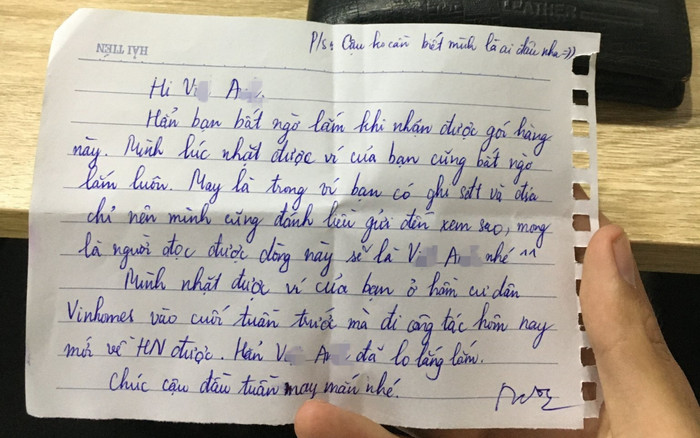 LEATHER
P/s: Cậu ko cần biết mình là ai đâu nha =))
HẢI TIẾN
Hi V A
Hẳn bạn bất ngờ lắm khi nhận được gói hàng
này. Mình lúc nhặt được ví của bạn cũng bất ngờ
lắm luôn. May là trong ví bạn có ghi sđt và địa
chỉ nên mình cũng đánh liều gửi đến xem sao, mong
là người đọc được dòng này sẽ là V A nhé ^^
Mình nhặt được ví của bạn ở hầm cư dân
Vinhomes vào cuối tuần trước mà đi công tác hôm nay
mới về HN được. Hẳn V A đã lo lắng lắm.
Chúc cậu đầu tuần may mắn nhé.